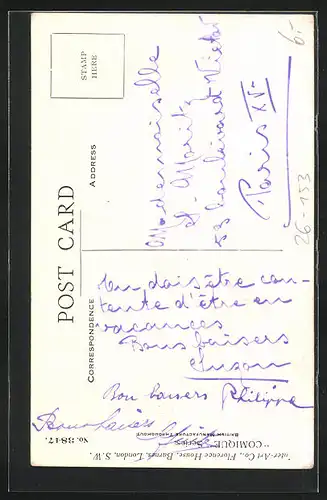 POST CARD
CORRESPONDENCE
ADDRESS
STAMP
HERE
Mademoiselle
St. Moritz
83 boulevard Victor
Paris XV-
6.-
26-153
Tu dois être con-
tente d'être en
vacances
Bons baisers
Suzon
Bon baisers Philippe
Bons baisers
No. 3847.
"COMIQUE" SERIES.
BRITISH MANUFACTURE THROUGHOUT
Inter-Art Co., Florence House, Barnes, London, S.W.